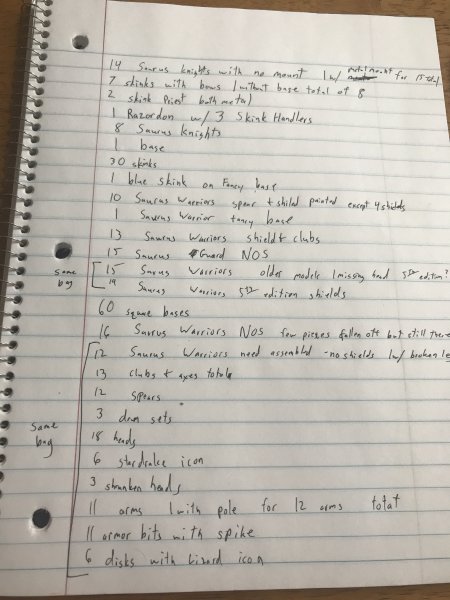 14 Saurus knights with no mount 1 w/ metal mount for 15 total
7 skinks with bows 1 without base total of 8
2 skink Priest both metal
1 Razordon w/ 3 Skink Handlers
8 Saurus Knights
1 base
30 skinks
1 blue skink on Fancy base
10 Saurus Warriors spear + shild painted except 4 shields
1 Saurus Warrior fancy base
13 Saurus Warriors shield + clubs
15 Saurus Guard NOS
same bag
15 Saurus Warriors older models 1 missing head 5th edition?
19 Saurus Warriors 5th edition shields
60 square bases
16 Saurus Warriors NOS few pieces fallen off but still there
same bag
12 Saurus Warriors need assembled - no shields 1 w/ broken
13 clubs + axes total
12 spears
3 drum sets
18 heads
6 stardrake icon
3 shrunken heads
11 arms 1 with pole for 12 arms total
11 armor bits with spike
6 disks with lizard icon